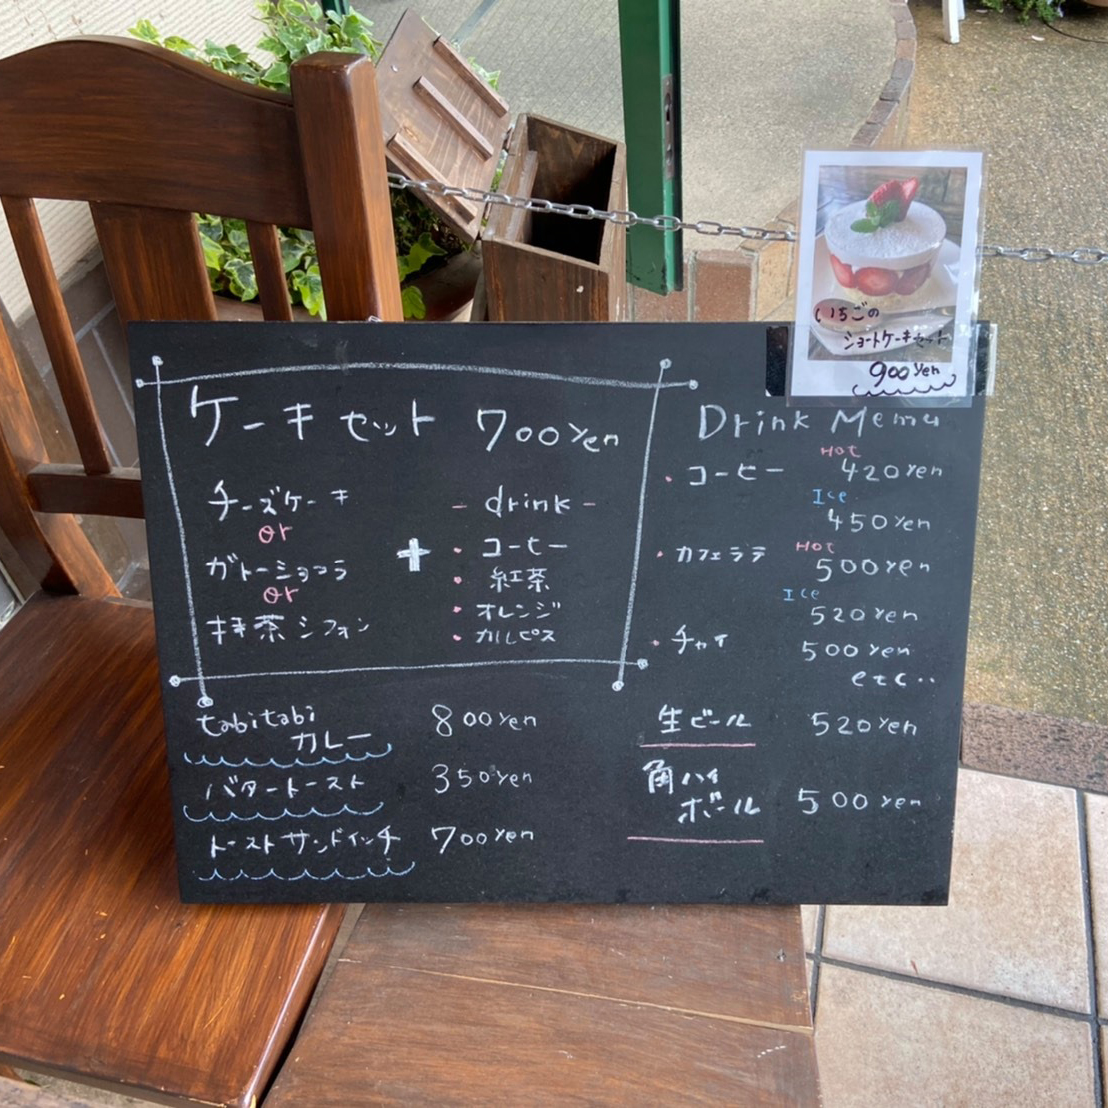 いちごの
ショートケーキセット
900yen
ケーキセット 700yen
チーズケーキ
or
ガトーショコラ
or
抹茶シフォン
+
- drink -
・コーヒー
・紅茶
・オレンジ
・カルピス
tabitabi
カレー 800yen
バタートースト 350yen
トーストサンドイッチ 700yen
Drink Menu
・コーヒー Hot 420yen
Ice 450yen
・カフェラテ Hot 500yen
Ice 520yen
・チャイ 500yen
etc..
生ビール 520yen
角ハイ
ボール 500yen